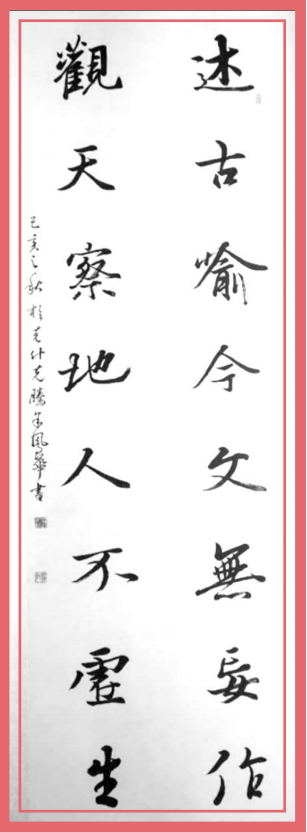 述古喻今文無妄作
觀天察地人不虛生
己亥之秋於克什克騰
風華書